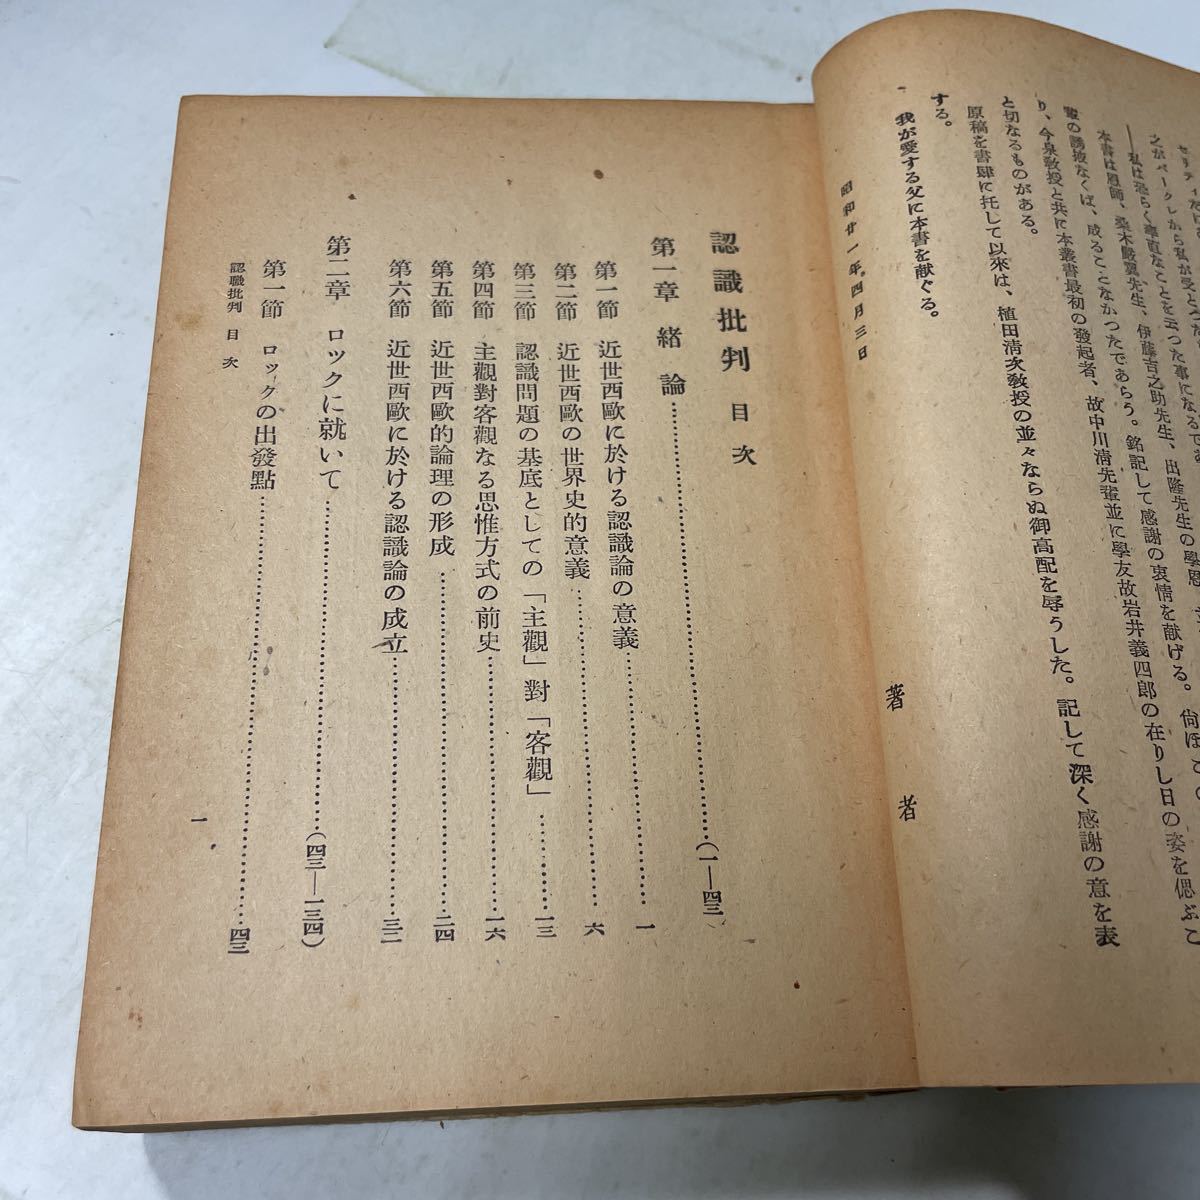 之がバークレから私が受とつた
――私は恐らく率直なことを云つた事になるであ
本書は恩師、桑木嚴翼先生、伊藤吉之助先生、出隆先生の學恩、
輩の誘掖なくば、成ることなかつたであらう。銘記して感謝の衷情を献げる。尙ほ
り、今泉敎授と共に本叢書最初の發起者、故中川淸先輩並に學友故岩井義四郎の在りし日の姿を偲ぶこ
と切なるものがある。
原稿を書肆に托して以來は、植田淸次敎授の並々ならぬ御高配を辱うした。記して深く感謝の意を表
する。
我が愛する父に本書を献ぐる。
昭和廿一年。四月三日
著者
認識批判 目次
第一章 緖論…………(一―四三)
第一節 近世西歐に於ける認識論の意義…………一
第二節 近世西歐の世界史的意義…………六
第三節 認識問題の基底としての「主觀」對「客觀」…………一三
第四節 主觀對客觀なる思惟方式の前史…………一六
第五節 近世西歐的論理の形成…………二四
第六節 近世西歐に於ける認識論の成立…………三二
第二章 ロツクに就いて…………(四三―一三四)
第一節 ロツクの出發點…………四三
認識批判 目次
一